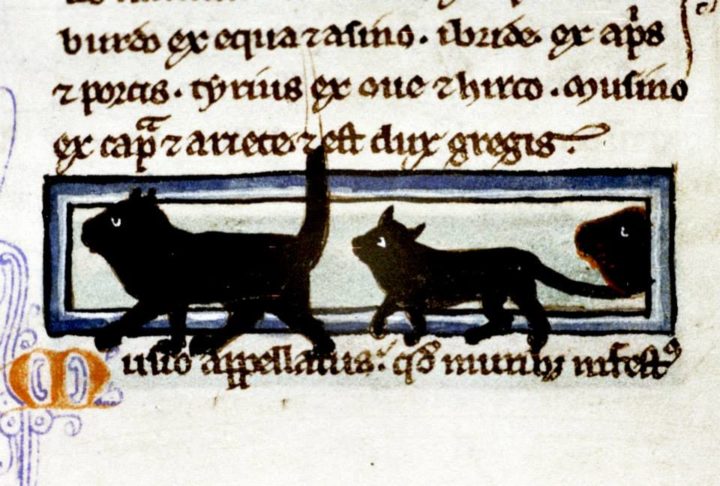 burdo ex equa ⁊ asino. ibride. ex apͥs
⁊ porcis. tyrius ex oue ⁊ hirco. musino
ex capᵃ ⁊ ariete. ⁊ est dux gregis.
Musio appellatus. qđ muribꝫ infestꝰ